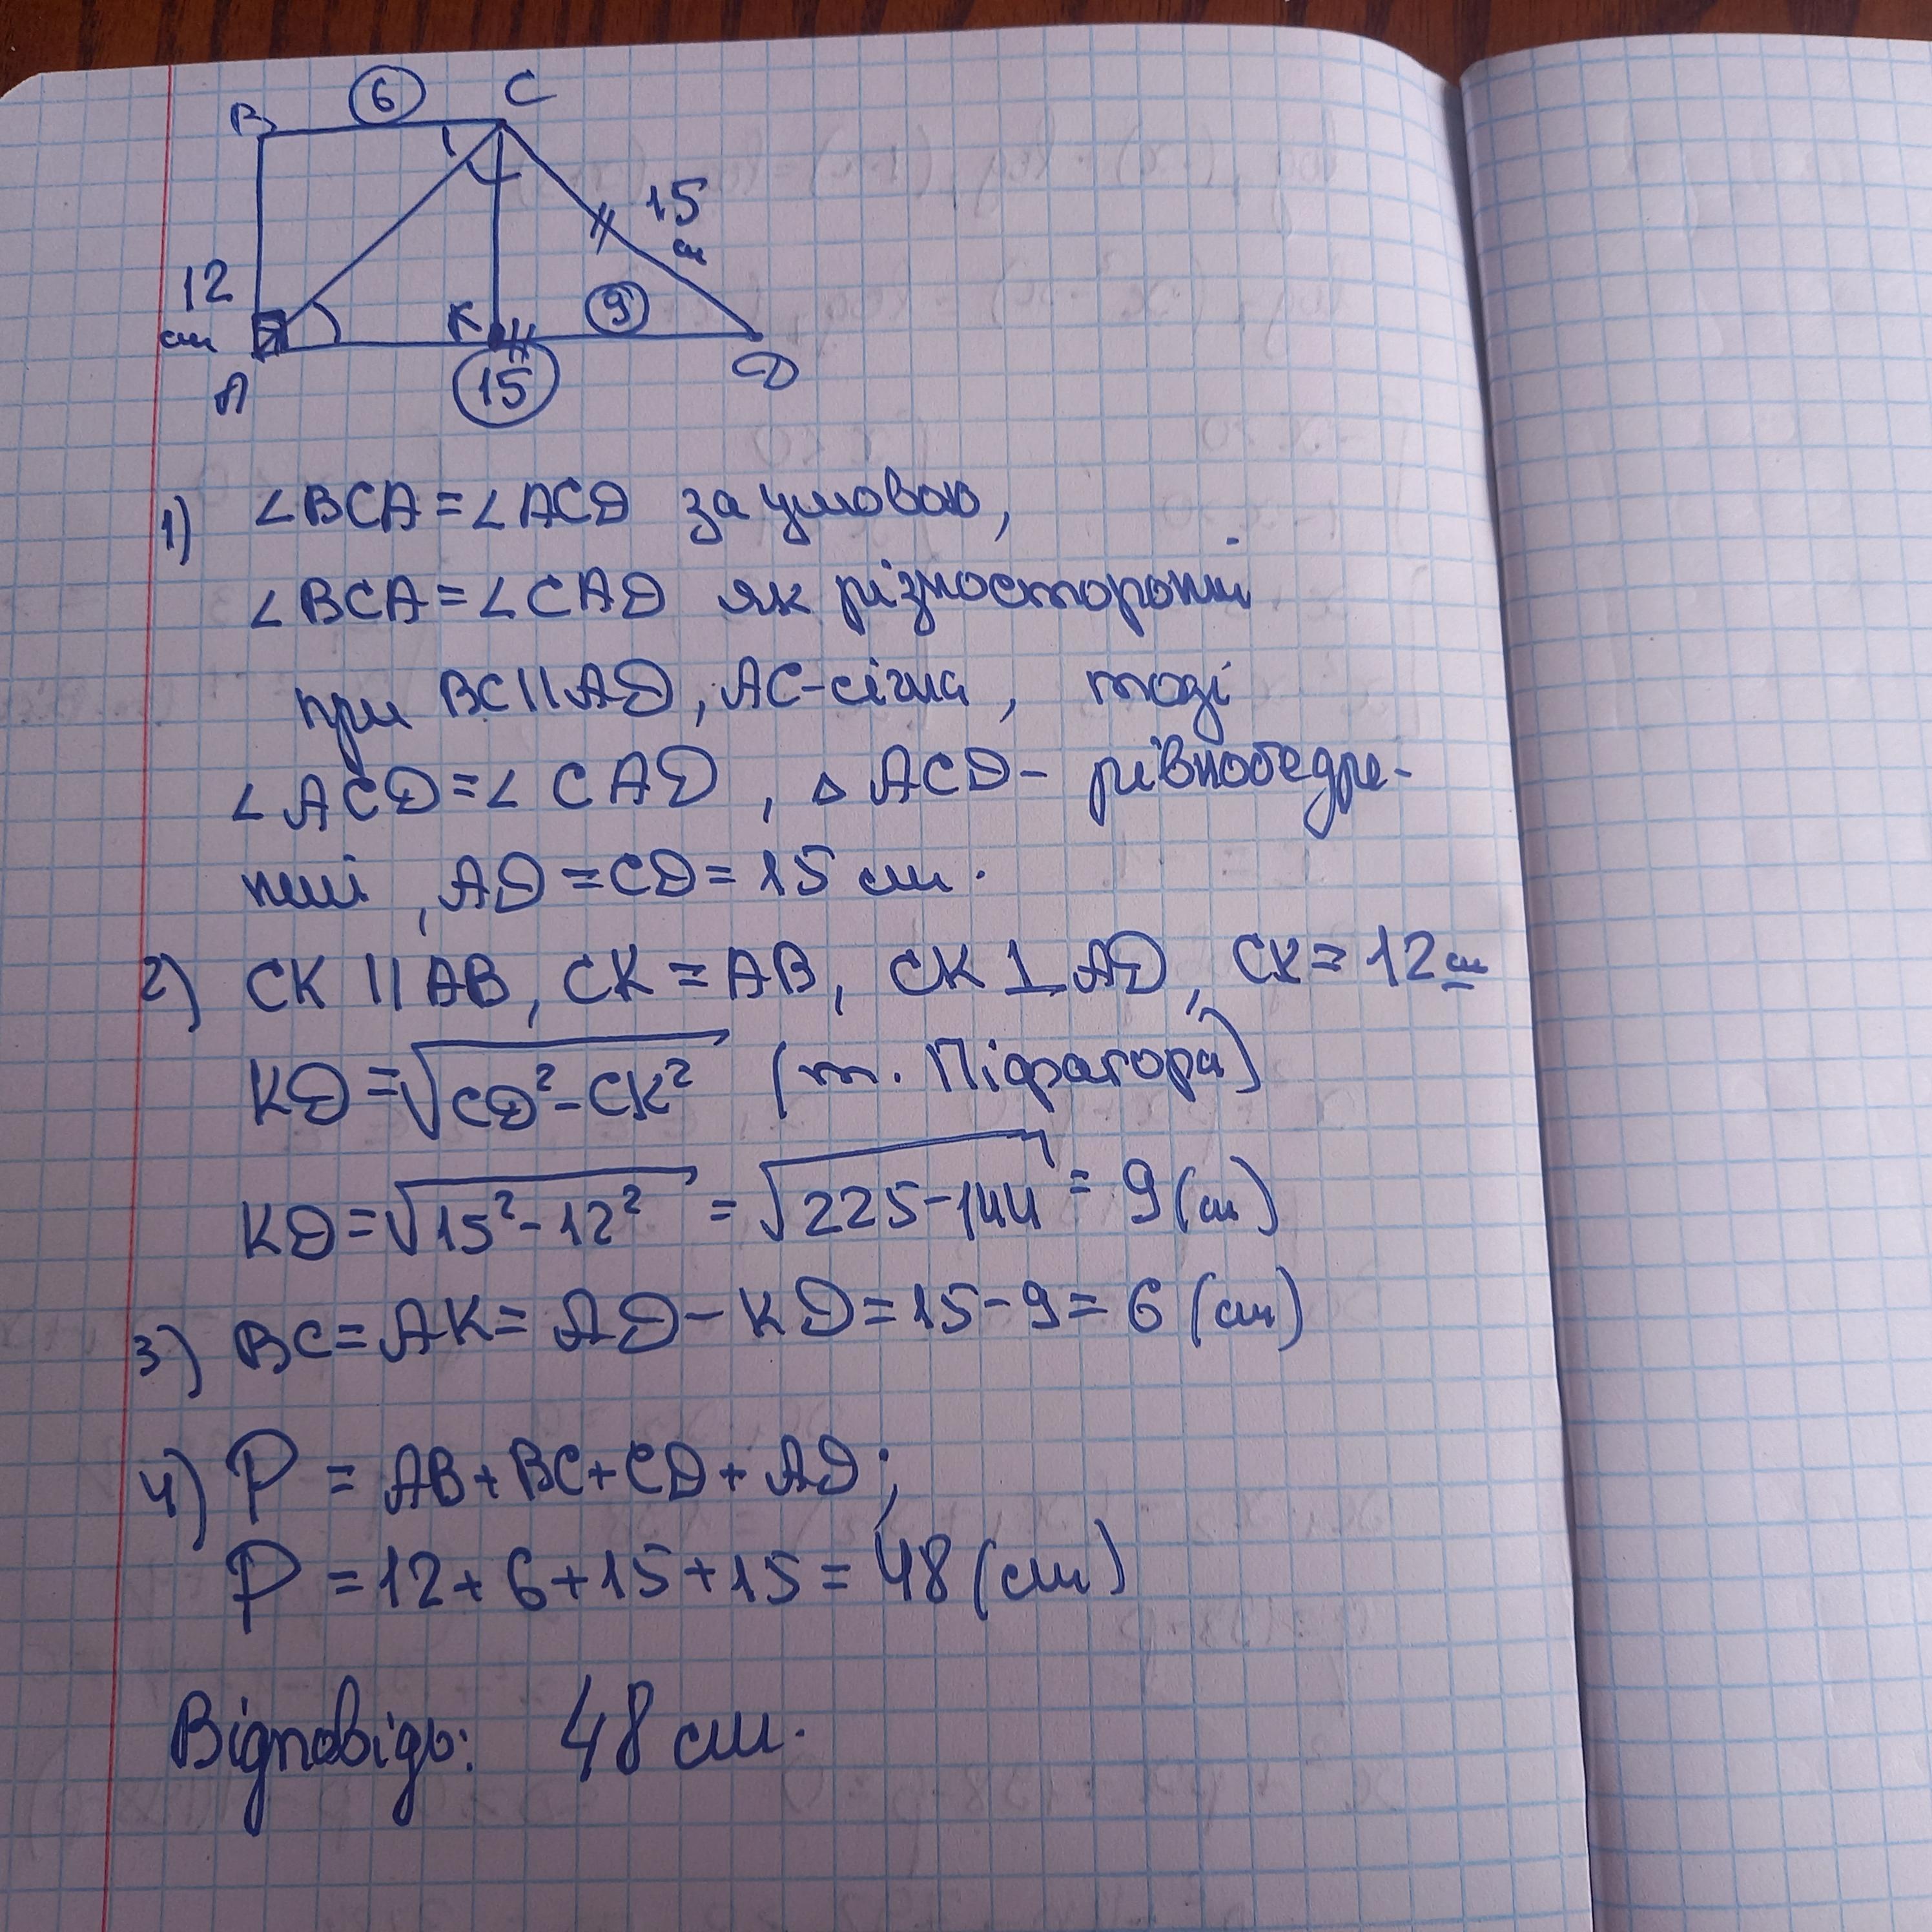 6
B
C
15
см
12
см
K
9
A
15
D
1) ∠BCA = ∠ACD за умовою,
∠BCA = ∠CAD як різносторонні
при BC || AD, AC-січна, тоді
∠ACD = ∠CAD, △ACD - рівнобедре-
ний, AD = CD = 15 см.
2) CK || AB, CK = AB, CK ⊥ AD, CK = 12 см
KD = √(CD² - CK²) (т. Піфагора)
KD = √(15² - 12²) = √(225 - 144) = 9 (см)
3) BC = AK = AD - KD = 15 - 9 = 6 (см)
4) P = AB + BC + CD + AD;
P = 12 + 6 + 15 + 15 = 48 (см)
Відповідь: 48 см.